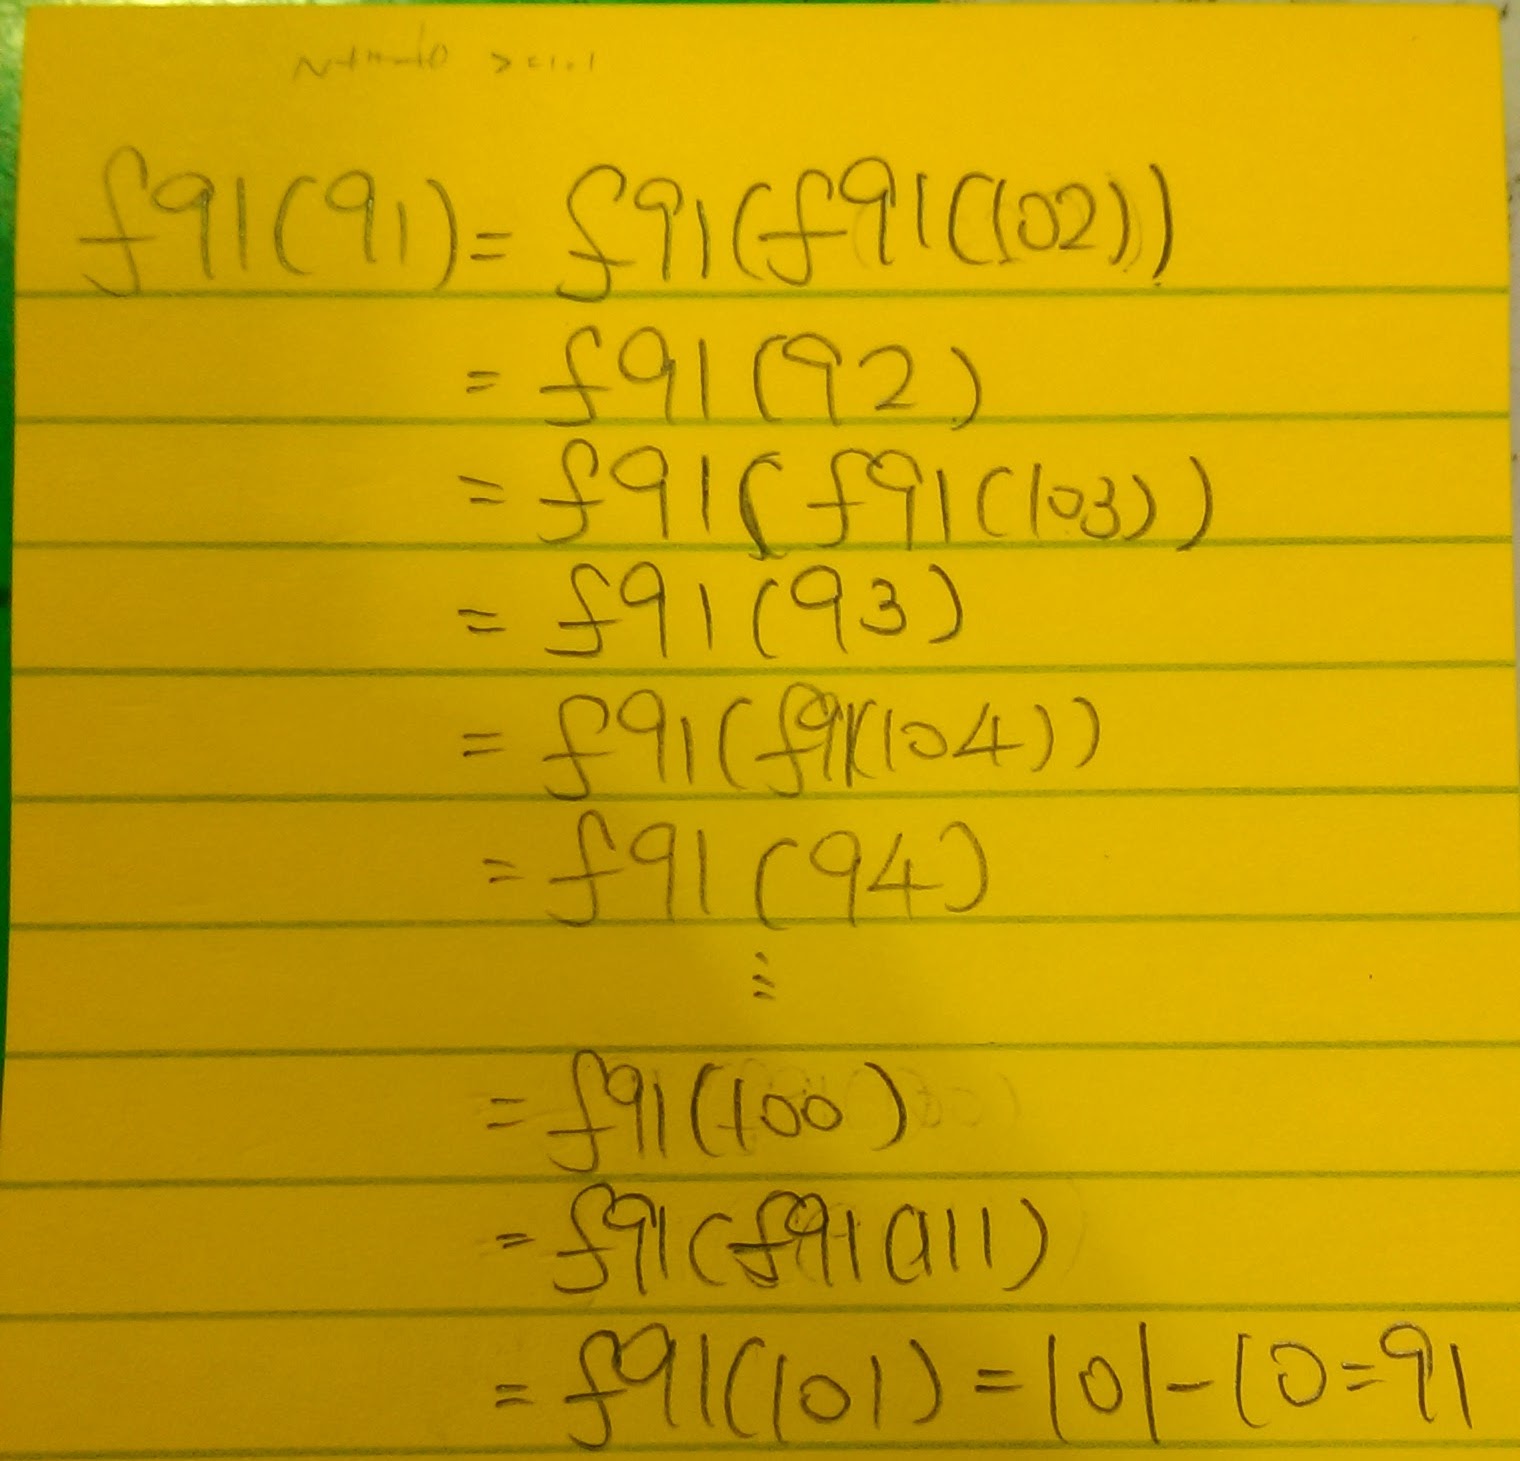 f91(91) = f91(f91(102))
= f91(92)
= f91(f91(103))
= f91(93)
= f91(f91(104))
= f91(94)
⋮
= f91(100)
= f91(f91(111)
= f91(101) = 101-10=91